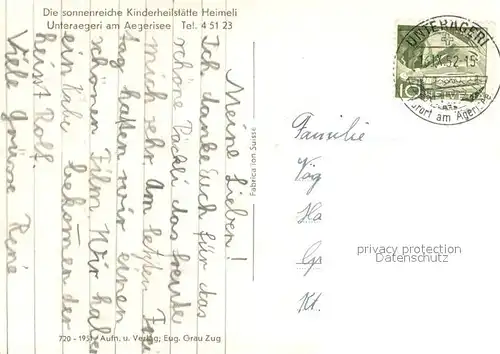 Die sonnenreiche Kinderheilstätte Heimeli
Unteraegeri am Aegerisee Tel. 4 51 23
Meine Lieben!
Ich danke Euch für das
schöne Päckli das freute
mich sehr. Am letzten Frei
tag hatten wir einen
schönen Film. Wir haben
ein Knabe bekomen der
heisst Rolf.
Viele Grüsse René
Fabrication Suisse
720 - 1951 Aufn. u. Verlag; Eug. Grau Zug
UNTERÄGERI
52.-15
am Ägeri
10
Familie
Vög
Ha
Gr
Kt.
privacy protection
Datenschutz